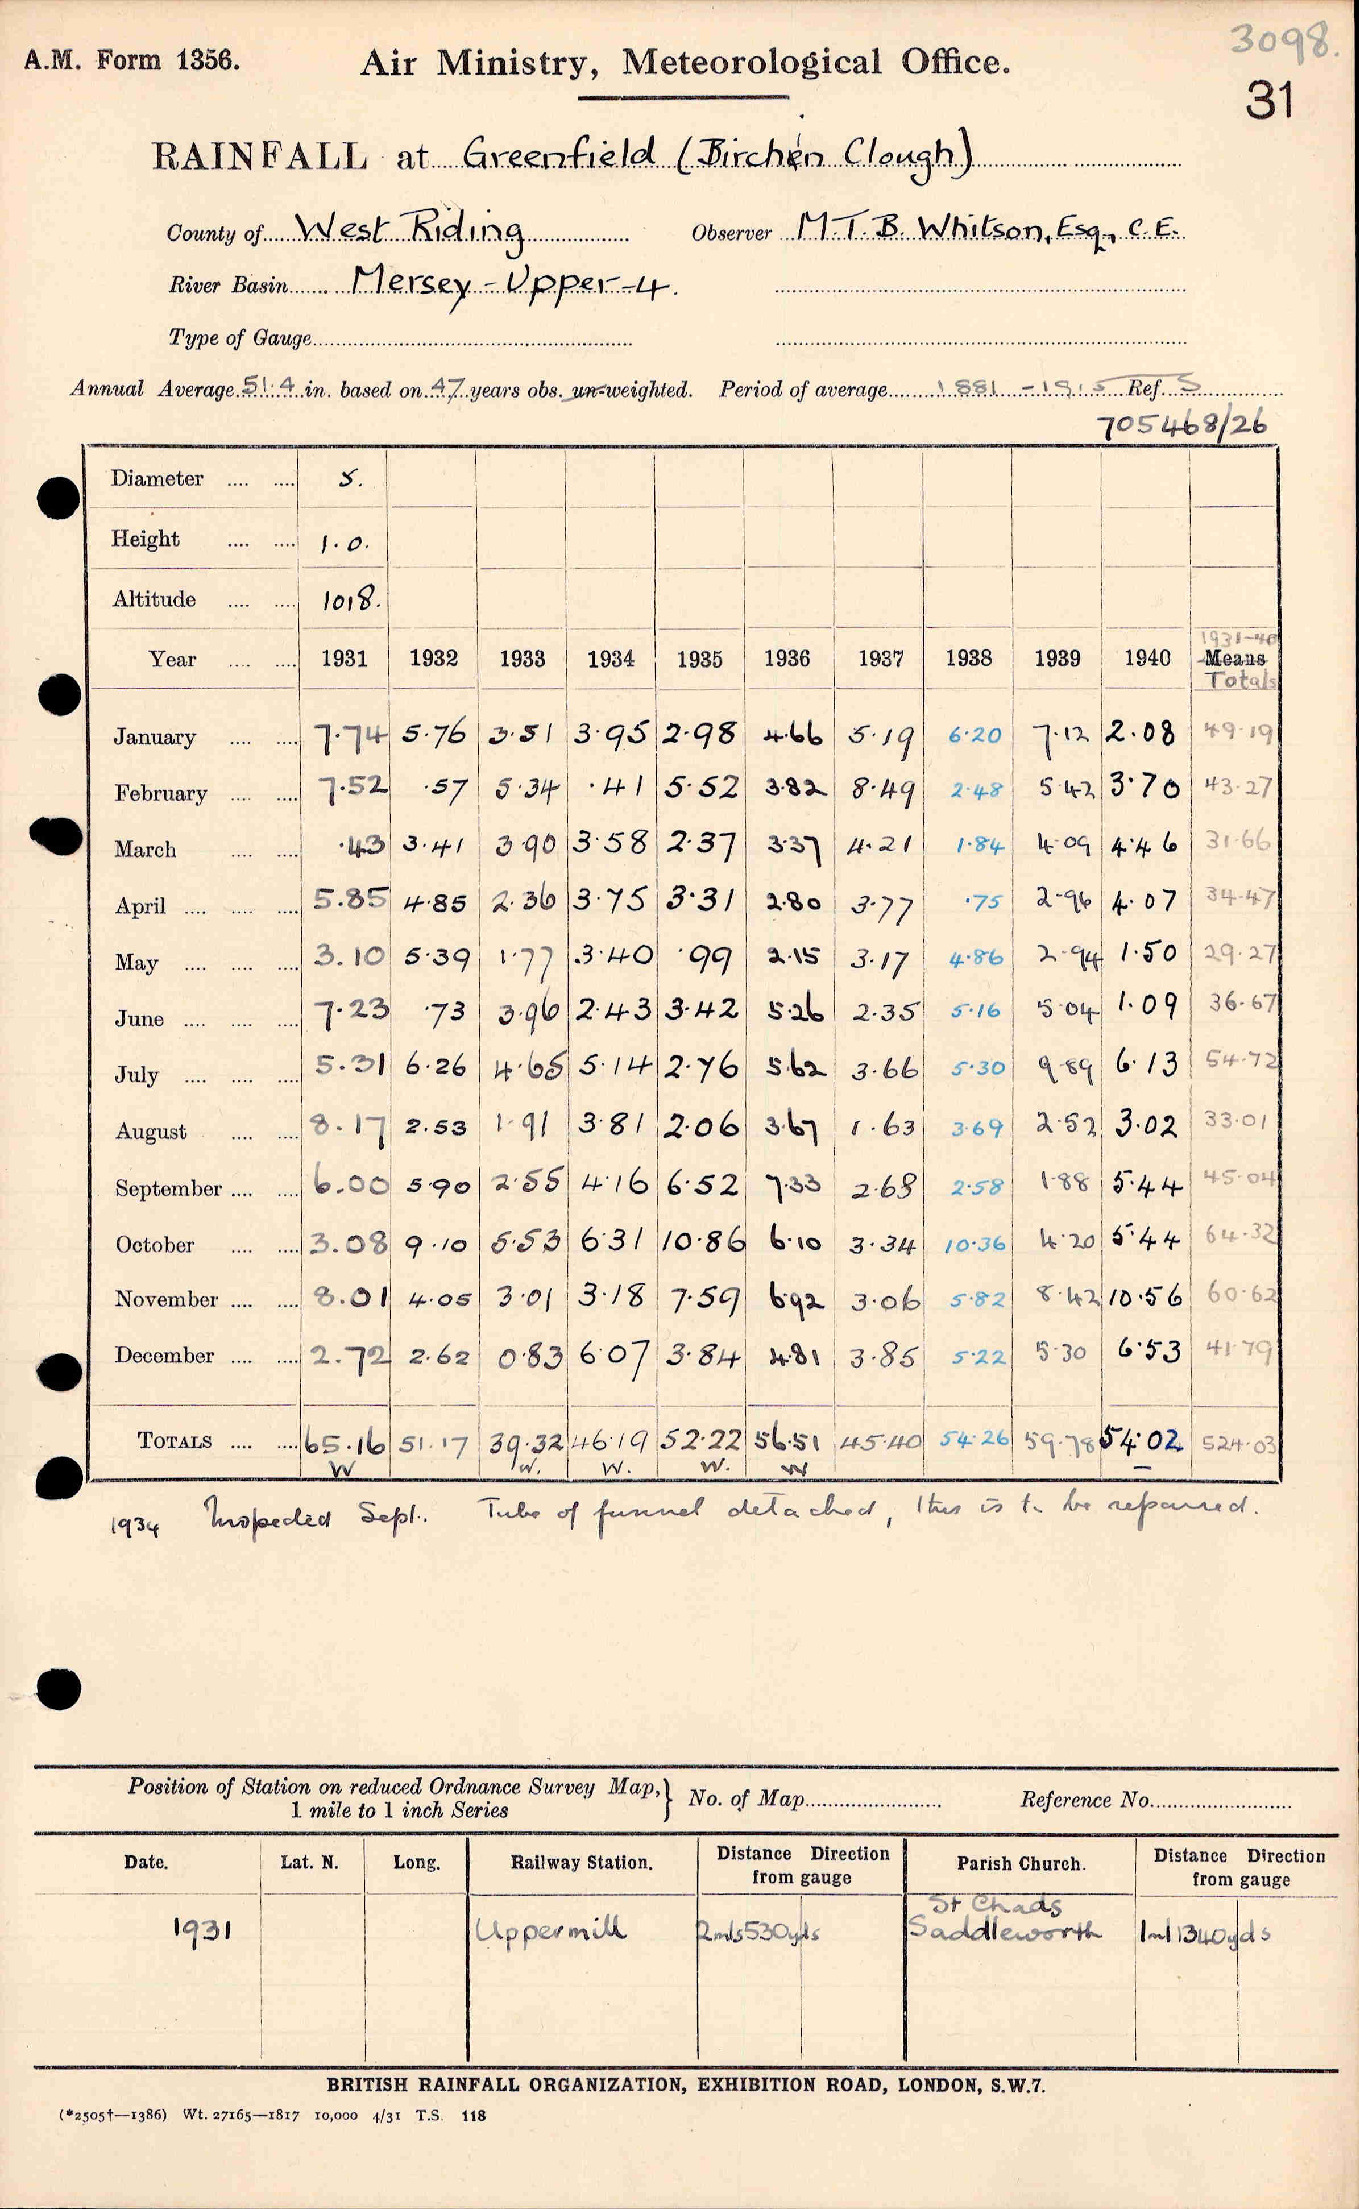 3098.
A.M. Form 1356. Air Ministry, Meteorological Office.
31
RAINFALL at Greenfield (Birchen Clough)
County of West Riding Observer M.T.B. Whitson, Esq., C.E.
River Basin Mersey - Upper - 4.
Type of Gauge
Annual Average 51.4 in. based on 47 years obs. un-weighted. Period of average 1881 - 1915 Ref. S
705468/26
Diameter .... .... 5.
Height .... .... 1.0.
Altitude .... .... 1018.
1931-40
Year .... .... 1931 1932 1933 1934 1935 1936 1937 1938 1939 1940 Means
Totals
January .... .... 7.74 5.76 3.51 3.95 2.98 4.66 5.19 6.20 7.12 2.08 49.19
February .... .... 7.52 .57 5.34 .41 5.52 3.82 8.49 2.48 5.42 3.70 43.27
March .... .... .43 3.41 3.90 3.58 2.37 3.37 4.21 1.84 4.09 4.46 31.66
April .... .... .... 5.85 4.85 2.36 3.75 3.31 2.80 3.77 .75 2.96 4.07 34.47
May .... .... .... 3.10 5.39 1.77 3.40 .99 2.15 3.17 4.86 2.94 1.50 29.27
June .... .... .... 7.23 .73 3.96 2.43 3.42 5.26 2.35 5.16 5.04 1.09 36.67
July .... .... .... 5.31 6.26 4.65 5.14 2.76 5.62 3.66 5.30 9.89 6.13 54.72
August .... .... 8.17 2.53 1.91 3.81 2.06 3.67 1.63 3.69 2.52 3.02 33.01
September .... .... 6.00 5.90 2.55 4.16 6.52 7.33 2.68 2.58 1.88 5.44 45.04
October .... .... 3.08 9.10 5.53 6.31 10.86 6.10 3.34 10.36 4.20 5.44 64.32
November .... .... 8.01 4.05 3.01 3.18 7.59 6.92 3.06 5.82 8.42 10.56 60.62
December .... .... 2.72 2.62 0.83 6.07 3.84 4.81 3.85 5.22 5.30 6.53 41.79
TOTALS .... .... 65.16 51.17 39.32 46.19 52.22 56.51 45.40 54.26 59.78 54.02 524.03
W W. W. W. W
1934 Inspected Sept. Tube of funnel detached, this is to be repaired.
Position of Station on reduced Ordnance Survey Map,
1 mile to 1 inch Series } No. of Map Reference No.
Date. Lat. N. Long. Railway Station. Distance Direction from gauge Parish Church. Distance Direction from gauge
St Chads
1931 Uppermill 2mls 530yds Saddleworth 1ml 1340yds
BRITISH RAINFALL ORGANIZATION, EXHIBITION ROAD, LONDON, S.W.7.
(*2505†—1386) Wt. 27165—1817 10,000 4/31 T.S. 118